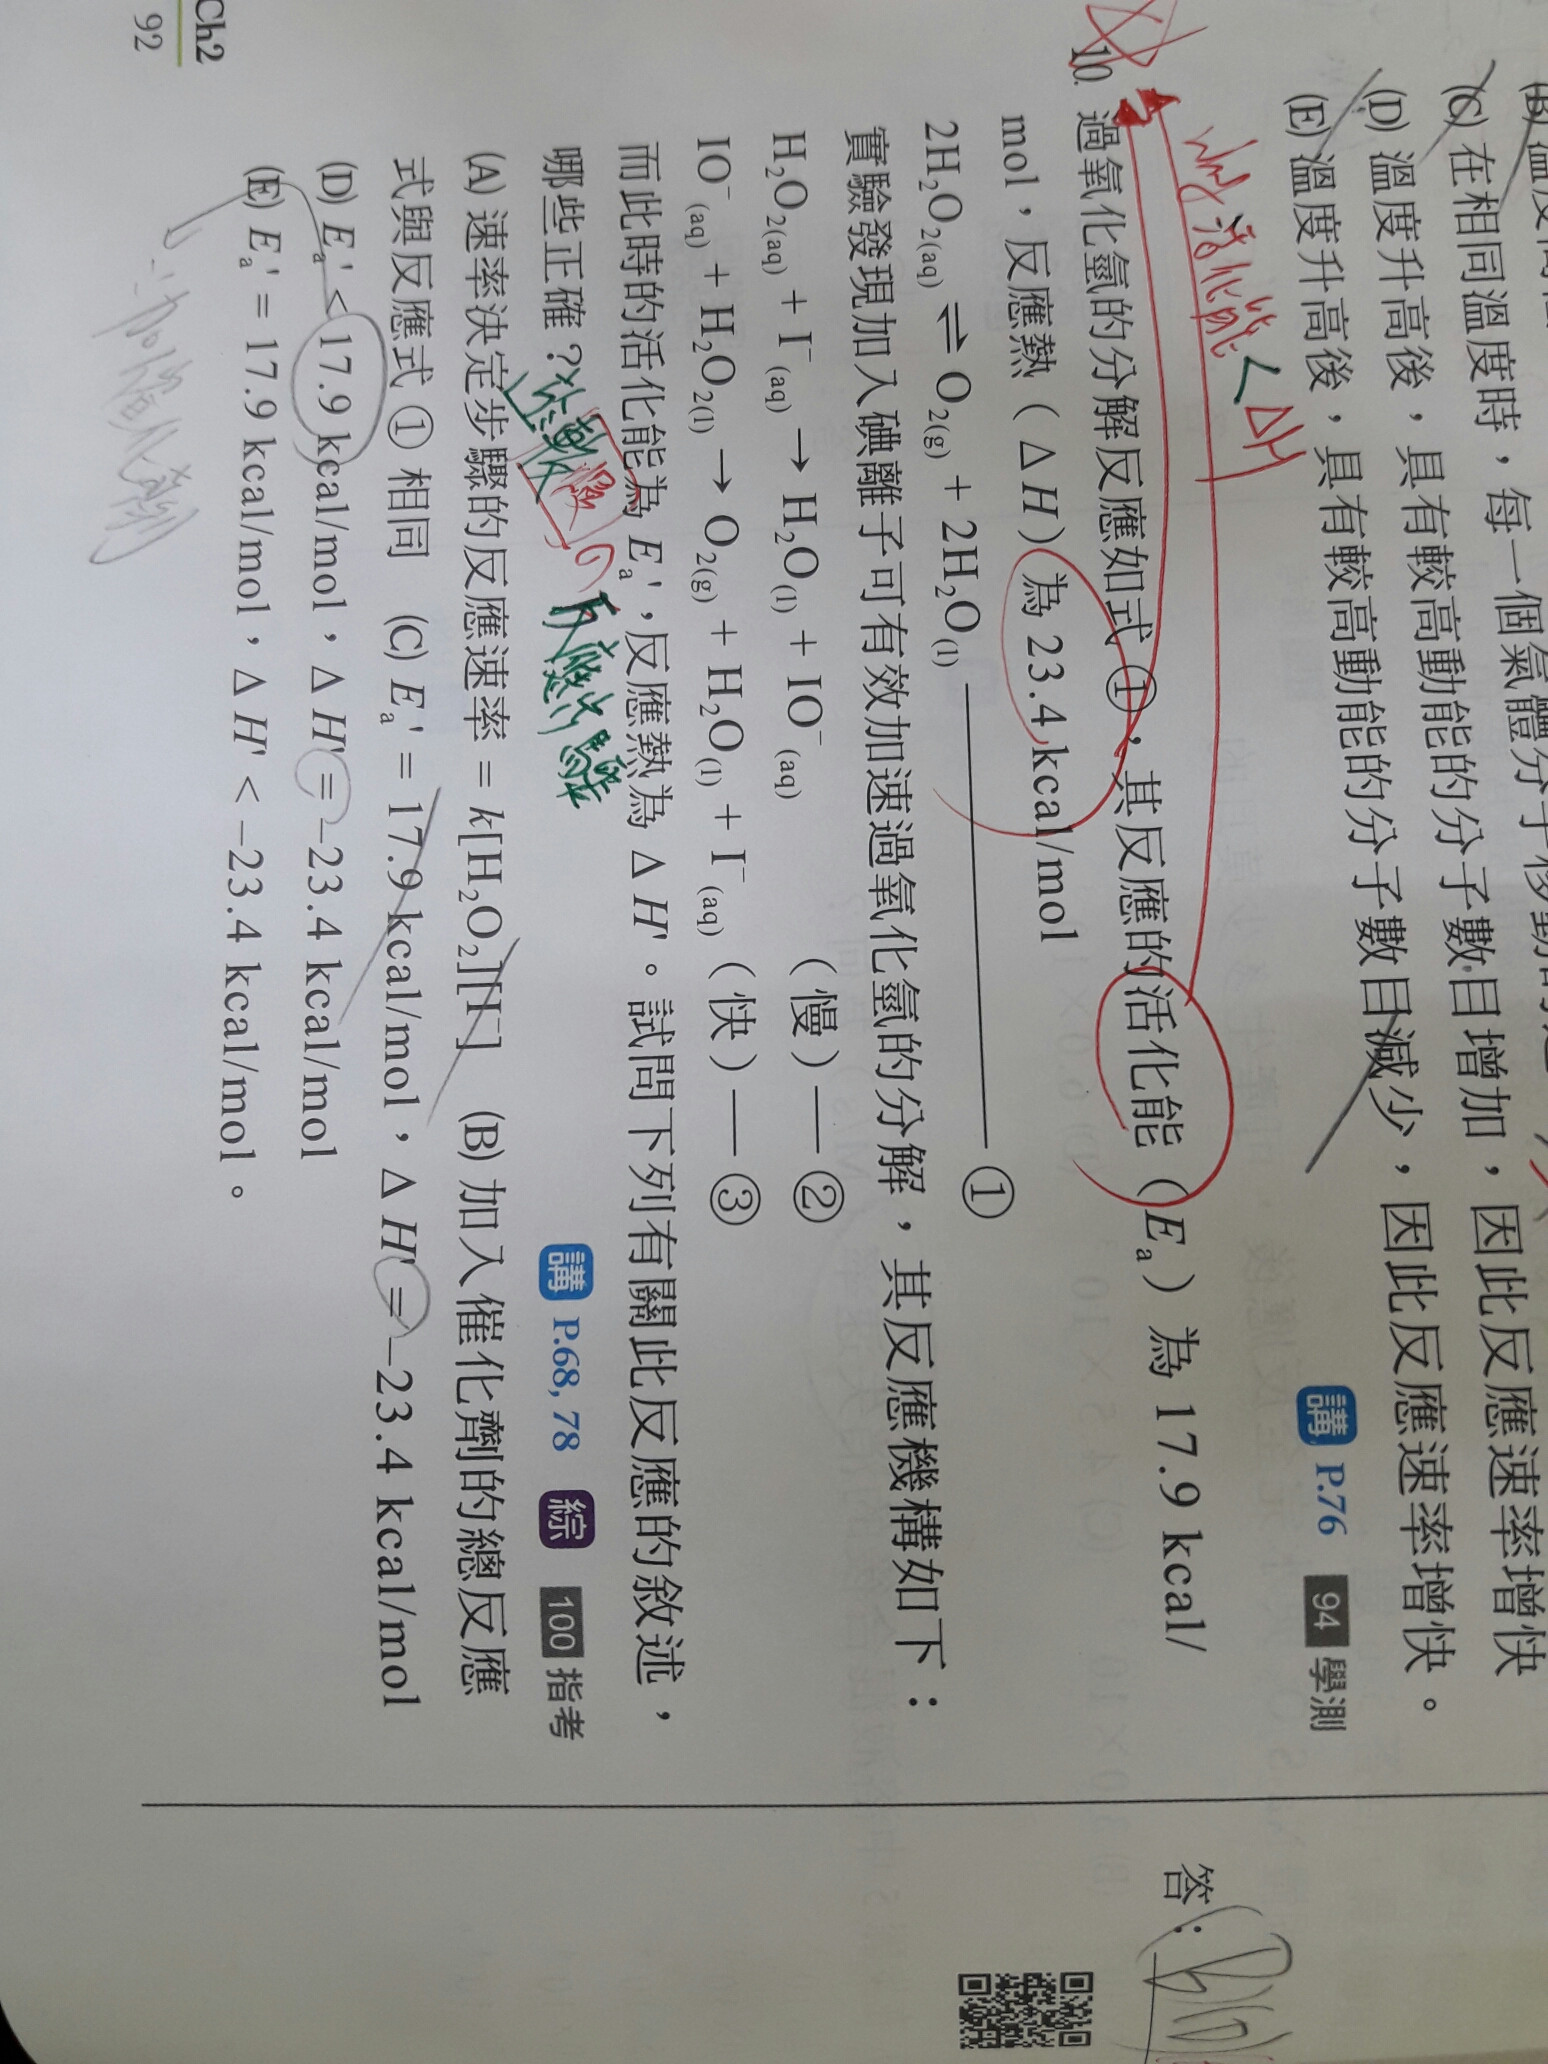 (C) 在相同溫度時，每一個氣體分子移動的
(D) 溫度升高後，具有較高動能的分子數目增加，因此反應速率增快
(E) 溫度升高後，具有較高動能的分子數目減少，因此反應速率增快。
講 P.76 94 學測
活化能 < ΔH
10. 過氧化氫的分解反應如式①，其反應的活化能（Ea）為 17.9 kcal/
mol，反應熱（ΔH）為 23.4 kcal/mol
2H2O2(aq) ⇌ O2(g) + 2H2O(l) ——— ①
實驗發現加入碘離子可有效加速過氧化氫的分解，其反應機構如下：
H2O2(aq) + I⁻(aq) → H2O(l) + IO⁻(aq) （慢）—— ②
IO⁻(aq) + H2O2(l) → O2(g) + H2O(l) + I⁻(aq) （快）—— ③
而此時的活化能為 Ea'，反應熱為 ΔH'。試問下列有關此反應的敘述，
哪些正確？ 講 P.68, 78 綜 100 指考
慢の反應步驟
(A) 速率決定步驟的反應速率 = k[H2O2][I⁻] (B) 加入催化劑的總反應
式與反應式 ① 相同 (C) Ea' = 17.9 kcal/mol，ΔH' = –23.4 kcal/mol
(D) Ea' < 17.9 kcal/mol，ΔH' = –23.4 kcal/mol
(E) Ea' = 17.9 kcal/mol，ΔH' < –23.4 kcal/mol。
∵加催化劑
答：
Ch2
92